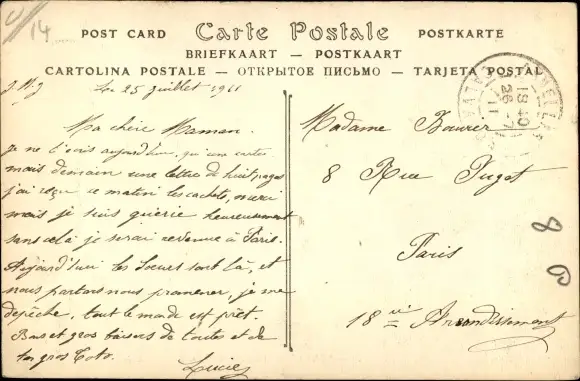 14
POST CARD Carte Postale POSTKARTE
BRIEFKAART — POSTKAART
CARTOLINA POSTALE — ОТКРЫТОЕ ПИСЬМО — TARJETA POSTAL
Le 25 juillet 1911
Ma chère Maman.
Je ne t'ecris aujourd'hui qu'une carte
mais demain une lettre de huit pages
j'ai reçu ce matin les cachets, merci
mais je suis guerie heureusement
sans celà je serai revenue à Paris.
Aujourd'hui les Soeurs sont là, et
nous partons nous promener, je me
dépêche, tout le monde est prêt.
Bons et gros baisers de toutes et de
ta gros Toto.
Lucie
Madame Bouvier
8 Rue Puget
Paris
18 Arrondissement
18
26 -7
11
8